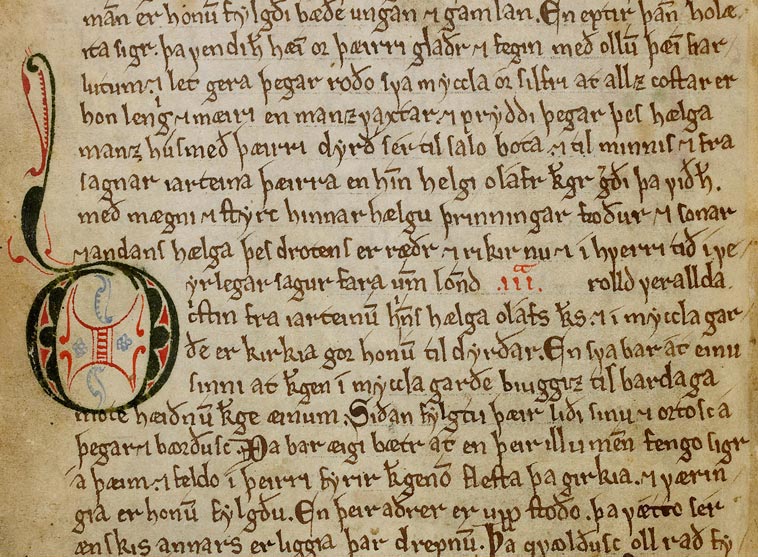 man er honū fylgði bæðe ungan ⁊ gamlan. En eptir þan̄ holæ
ita sigr. þa vendiḥ hæī or þærri glaðr ⁊ fegin með ollū þæī fær
lutum. ⁊ let gera þegar roðo sva myccla or silfri at allz costar er
hon leng̍ ⁊ mæiri en manz vaxtar. ⁊ pryddi þegar þes hælga
manz hus með þæirri dyrð ser til salo bota. ⁊ til minnis ⁊ fra
sagnar iarteina þæirra en hīn helgi olafr kgr gði þa við ḥ.
með mægni ⁊ styrc hinnar hælgu þrinningar foður ⁊ sonar
⁊ andans hælga þes drotens er ræðr ⁊ rikir nu ⁊ i hverri tið i ve
rolld verallda. .iii.
Dyrlegar sagur fara ūm lond
ostin fra iarteinū hīns hælga olafs kgs. ⁊ i myccla gar
ðe er kirkia gor honū til dyrðar. En sva bar at einu
sinni at kgen i myccla garðe biuggiz til bardaga
mote hæiðnū kge æinum. Siðan fylgtu þæir liði sinu ⁊ ortosc a
þegar ⁊ barðusc. Þa bar æigi bætr at en þeir illu mēn fengo sigr
a þæim ⁊ feldo i þeirri fyrir kgenō flesta þa girkia. ⁊ værin
gia er honū fylgðu. En þeir aðrer er upp stoðo. þa vætto ser
ænskis annars er liggia þar drepnū. Þa qvælðusc oll rað fy